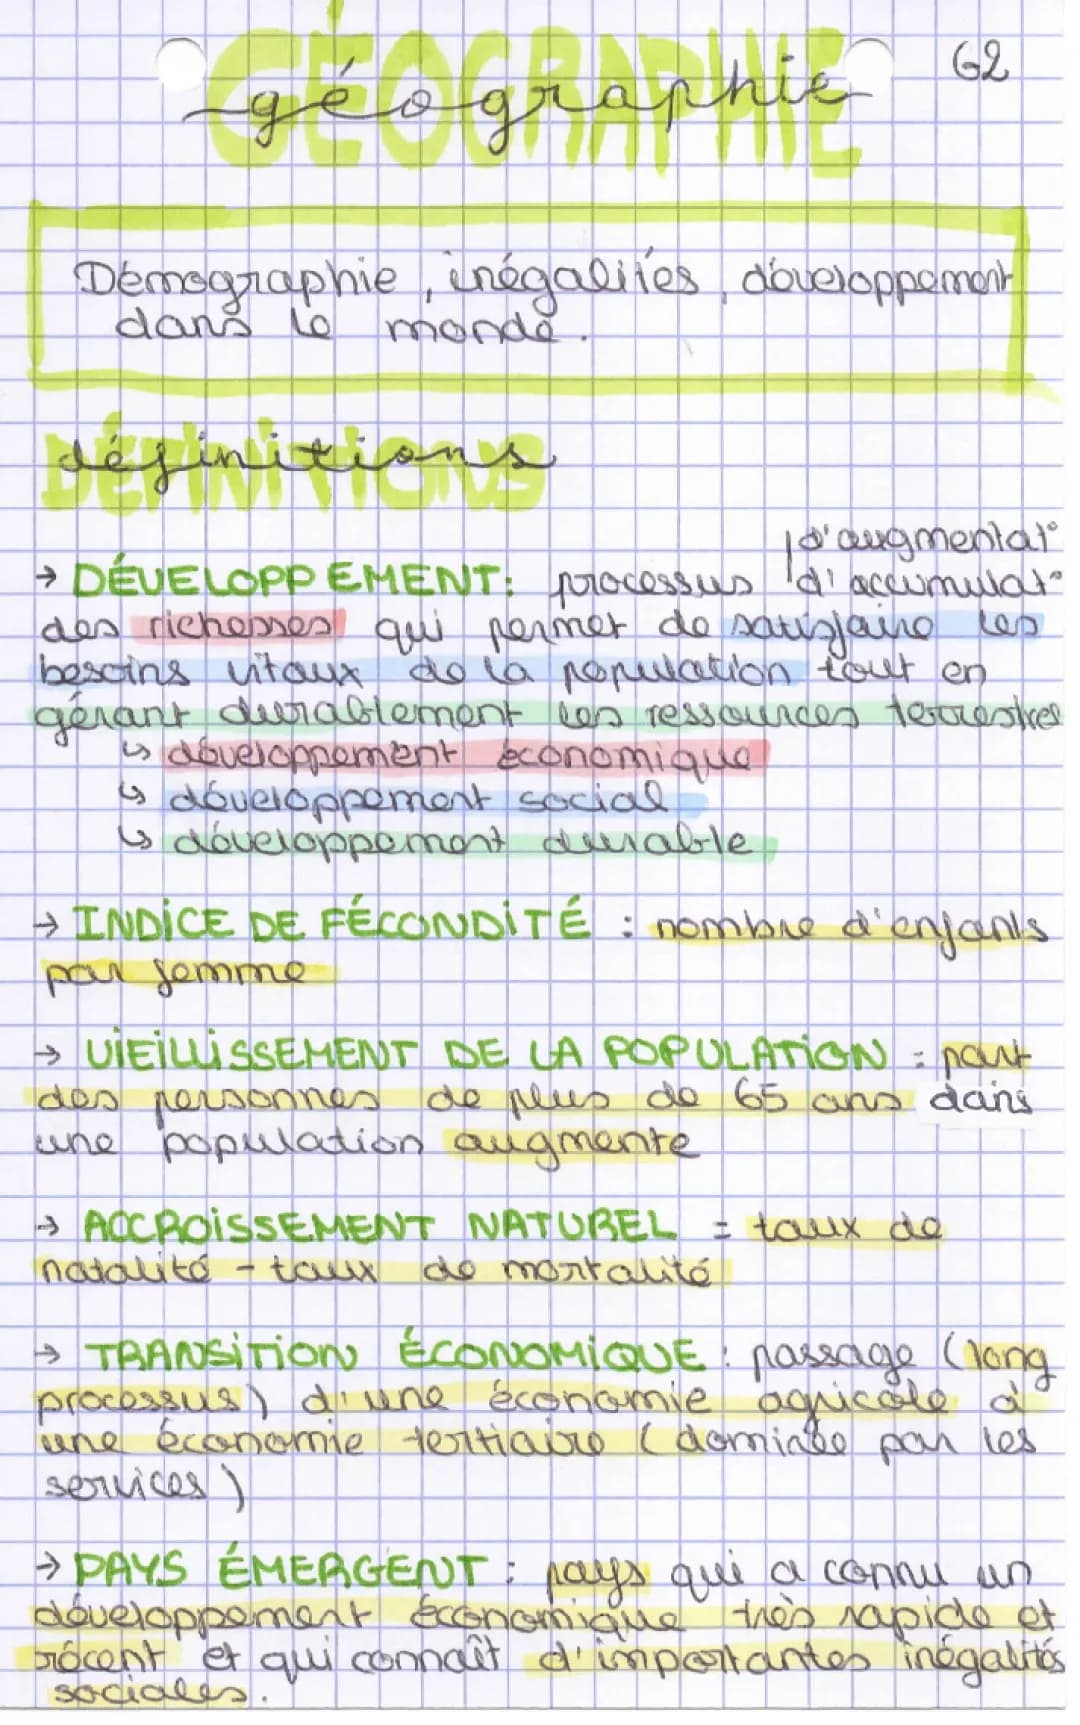 GÉOGRAPHIE
géographie
G2
Démographie, inégalités, développement
dans le monde.
DÉFINITIONS
définitions
d'augmentat°
→ DÉVELOPPEMENT: processus d'accumulat°
des richesses qui permet de satisfaire les
besoins vitaux de la population tout en
gérant durablement les ressources terrestres
↳ développement économique
↳ développement social
↳ développement durable
→ INDICE DE FÉCONDITÉ : nombre d'enfants
par femme
→ VIEILLISSEMENT DE LA POPULATION : part
des personnes de plus de 65 ans dans
une population augmente
→ ACCROISSEMENT NATUREL = taux de
natalité - taux de mortalité
→ TRANSITION ÉCONOMIQUE : passage (long
processus) d'une économie agricole à
une économie tertiaire (dominée par les
services)
→ PAYS ÉMERGENT : pays qui a connu un
développement économique très rapide et
récent et qui connaît d'importantes inégalités
sociales.